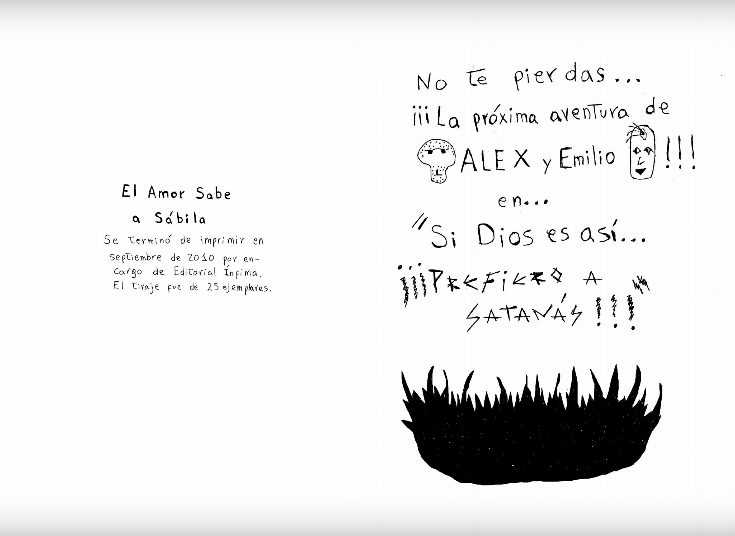 El Amor Sabe
a Sábila
Se terminó de imprimir en
septiembre de 2010 por en-
cargo de Editorial Ínpima.
El tiraje fue de 25 ejemplares.
No te pierdas...
¡¡¡La próxima aventura de
ALEX y Emilio !!!
en...
"Si Dios es así...
¡¡¡PREFIERO A
SATANÁS!!!"